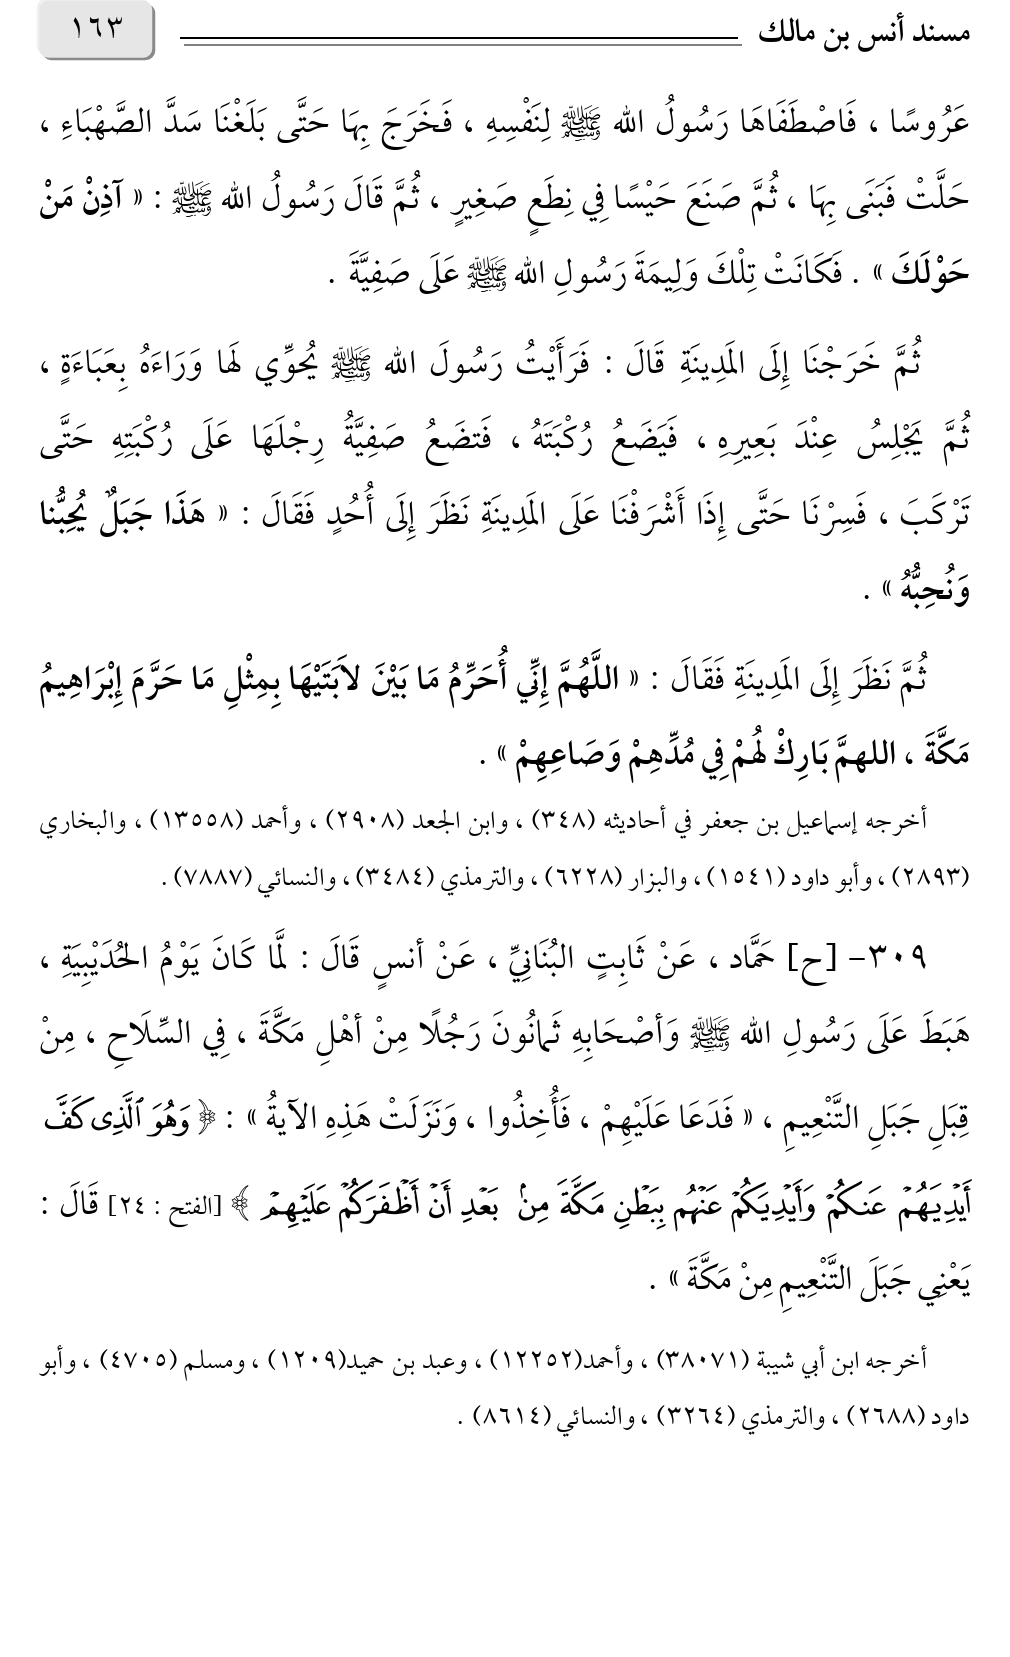 مسند أنس بن مالك ١٦٣
عَرُوسًا ، فَاصْطَفَاهَا رَسُولُ الله ﷺ لِنَفْسِهِ ، فَخَرَجَ بِهَا حَتَّى بَلَغْنَا سَدَّ الصَّهْبَاءِ ،
حَلَّتْ فَبَنَى بِهَا ، ثُمَّ صَنَعَ حَيْسًا فِي نِطَعٍ صَغِيرٍ ، ثُمَّ قَالَ رَسُولُ الله ﷺ : « آذِنْ مَنْ
حَوْلَكَ » . فَكَانَتْ تِلْكَ وَلِيمَةَ رَسُولِ الله ﷺ عَلَى صَفِيَّةَ .
ثُمَّ خَرَجْنَا إِلَى المَدِينَةِ قَالَ : فَرَأَيْتُ رَسُولَ الله ﷺ يُحَوِّي لَهَا وَرَاءَهُ بِعَبَاءَةٍ ،
ثُمَّ يَجْلِسُ عِنْدَ بَعِيرِهِ ، فَيَضَعُ رُكْبَتَهُ ، فَتضَعُ صَفِيَّةُ رِجْلَهَا عَلَى رُكْبَتِهِ حَتَّى
تَرْكَبَ ، فَسِرْنَا حَتَّى إِذَا أَشْرَفْنَا عَلَى المَدِينَةِ نَظَرَ إِلَى أُحُدٍ فَقَالَ : « هَذَا جَبَلٌ يُحِبُّنا
وَنُحِبُّهُ » .
ثُمَّ نَظَرَ إِلَى المَدِينَةِ فَقَالَ : « اللَّهُمَّ إِنِّي أُحَرِّمُ مَا بَيْنَ لاَبَتَيْهَا بِمِثْلِ مَا حَرَّمَ إِبْرَاهِيمُ
مَكَّةَ ، اللهمَّ بَارِكْ لَهُمْ فِي مُدِّهِمْ وَصَاعِهِمْ » .
أخرجه إسماعيل بن جعفر في أحاديثه (٣٤٨) ، وابن الجعد (٢٩٠٨) ، وأحمد (١٣٥٥٨) ، والبخاري
(٢٨٩٣) ، وأبو داود (١٥٤١) ، والبزار (٦٢٢٨) ، والترمذي (٣٤٨٤) ، والنسائي (٧٨٨٧) .
٣٠٩- [ح] حَمَّاد ، عَنْ ثَابِتٍ البُنَانِيِّ ، عَنْ أنسٍ قَالَ : لَّمَا كَانَ يَوْمُ الحُدَيْبِيَةِ ،
هَبَطَ عَلَى رَسُولِ الله ﷺ وَأصْحَابِهِ ثَمانُونَ رَجُلًا مِنْ أهْلِ مَكَّةَ ، فِي السِّلَاحِ ، مِنْ
قِبَلِ جَبَلِ التَّنْعِيمِ ، « فَدَعَا عَلَيْهِمْ ، فَأُخِذُوا ، وَنَزَلَتْ هَذِهِ الآيةُ » : ﴿ وَهُوَ ٱلَّذِى كَفَّ
أَيْدِيَهُمْ عَنكُمْ وَأَيْدِيَكُمْ عَنْهُم بِبَطْنِ مَكَّةَ مِنۢ بَعْدِ أَنْ أَظْفَرَكُمْ عَلَيْهِمْ ﴾ [الفتح : ٢٤] قَالَ :
يَعْنِي جَبَلَ التَّنْعِيمِ مِنْ مَكَّةَ » .
أخرجه ابن أبي شيبة (٣٨٠٧١) ، وأحمد(١٢٢٥٢) ، وعبد بن حميد(١٢٠٩) ، ومسلم (٤٧٠٥) ، وأبو
داود (٢٦٨٨) ، والترمذي (٣٢٦٤) ، والنسائي (٨٦١٤) .